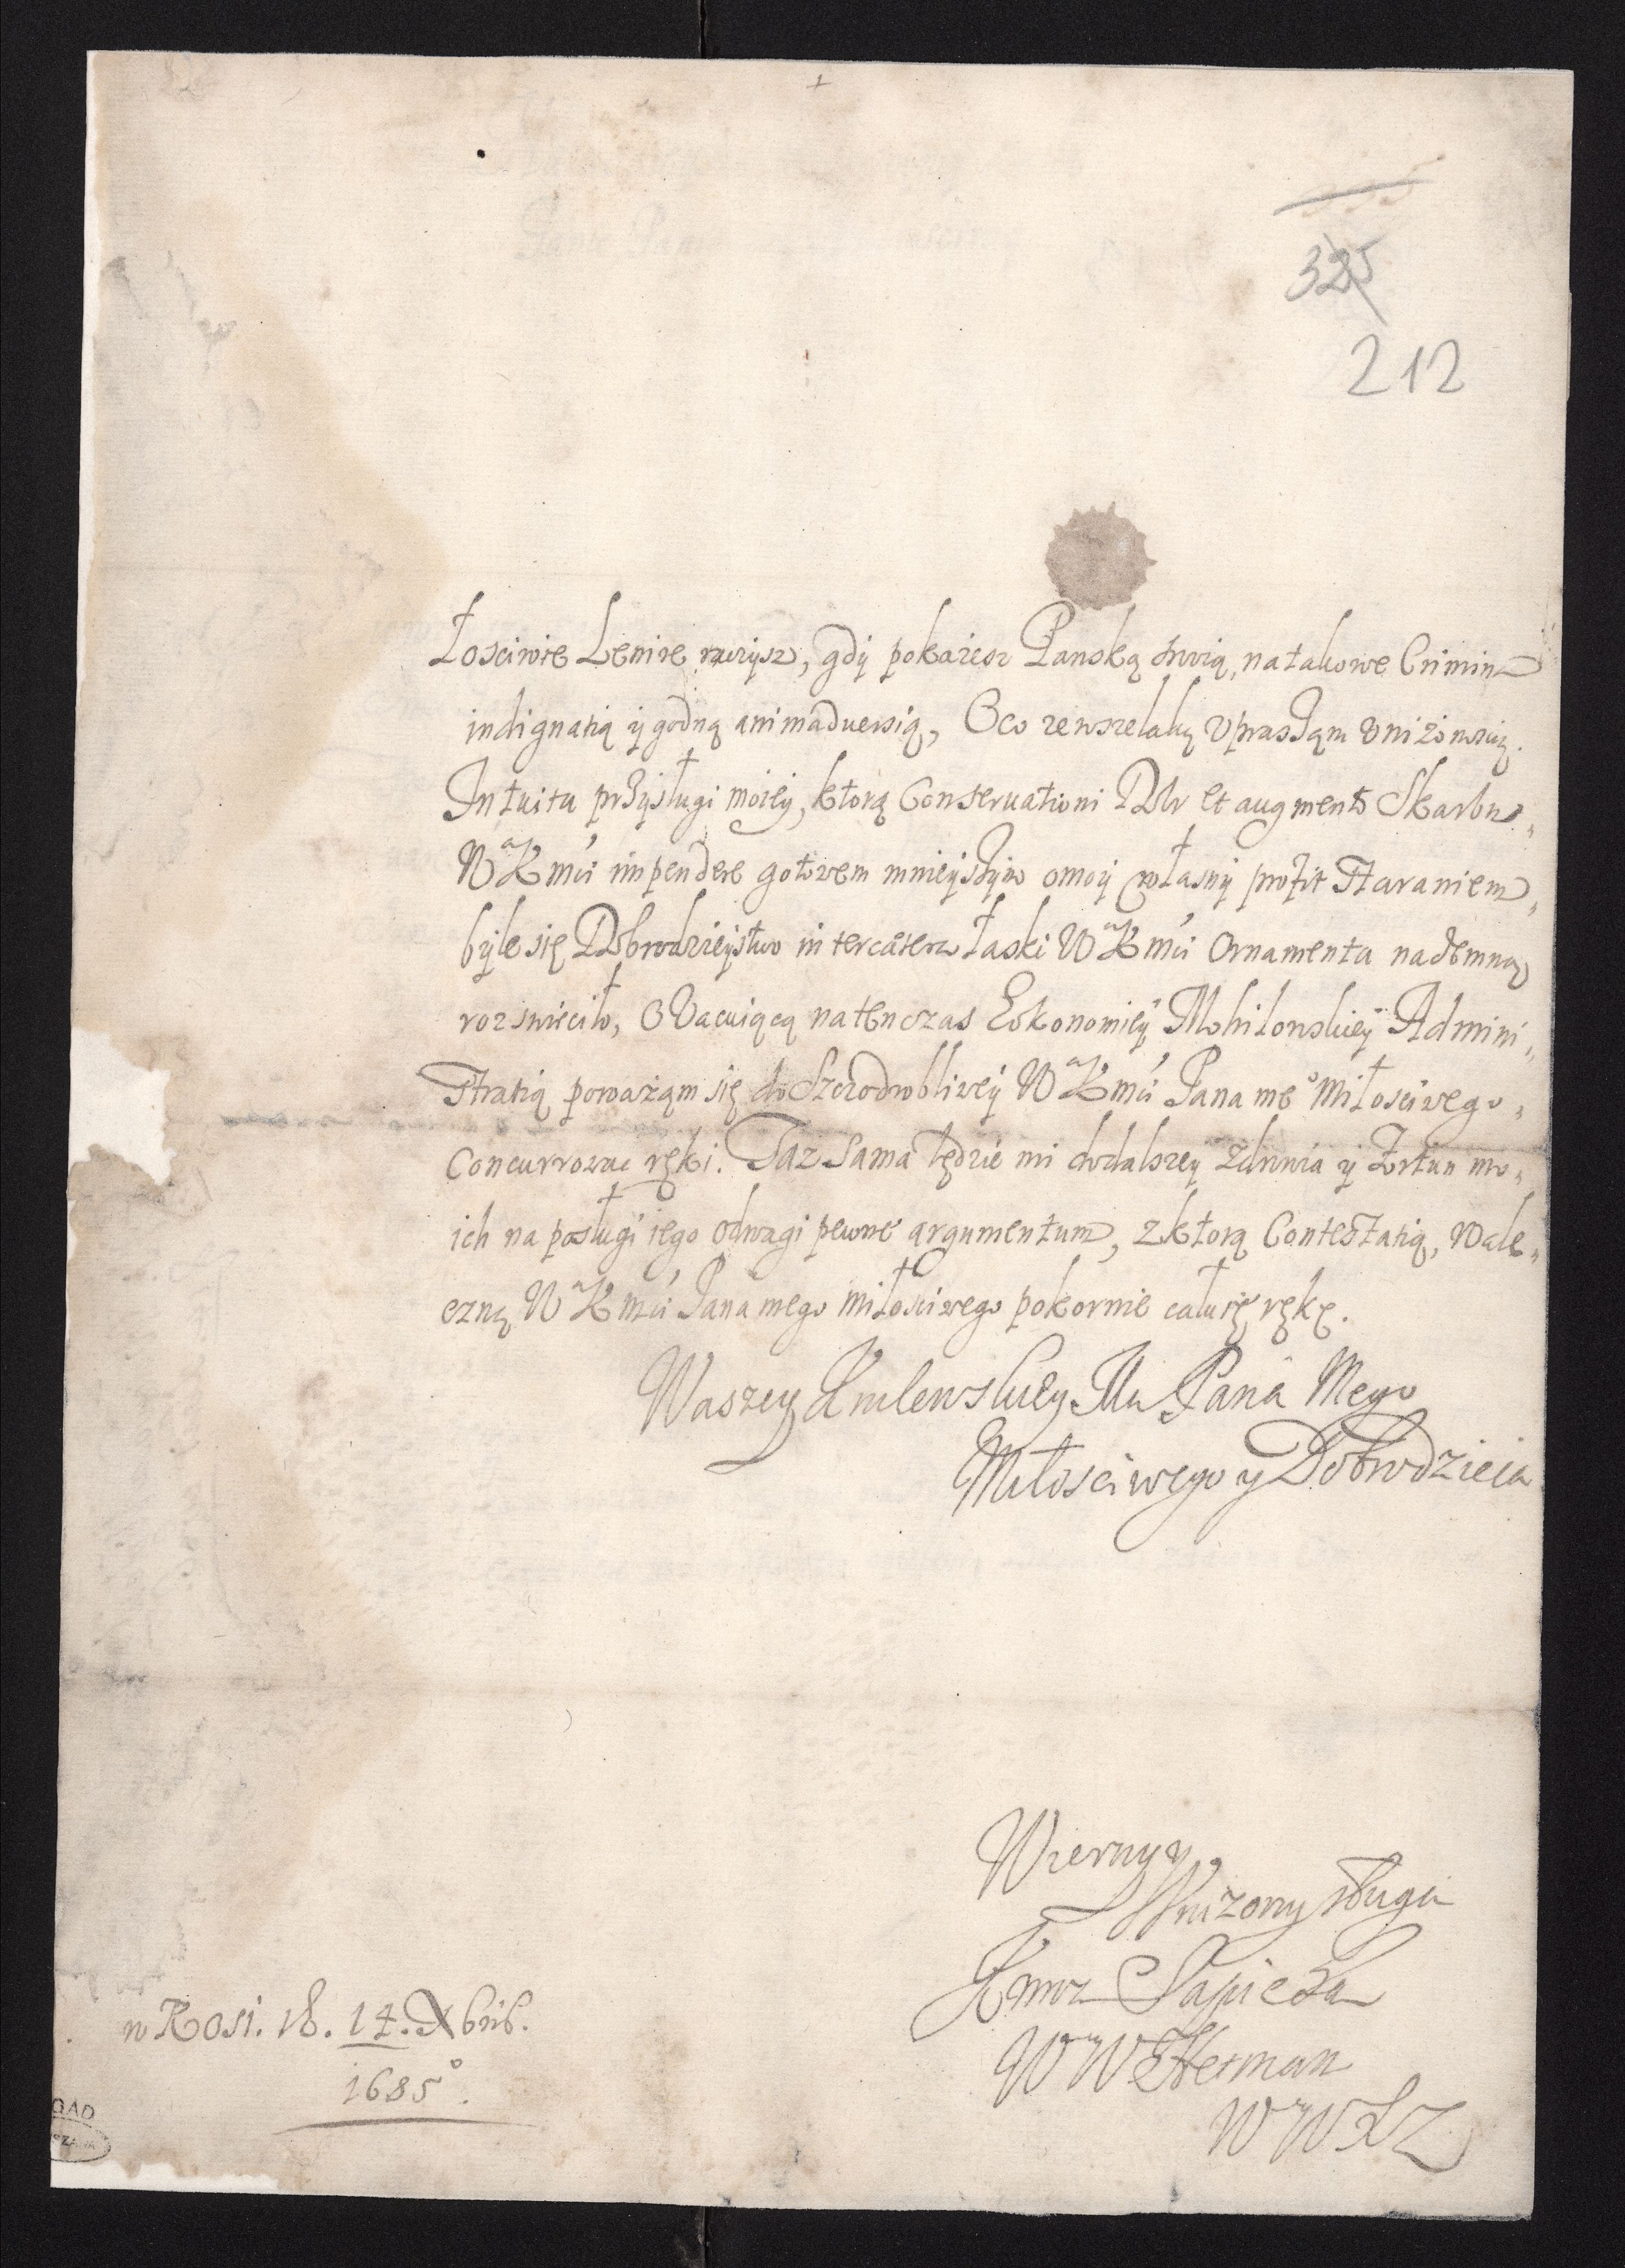 325
212
łosciwie Lenire raczysz, gdÿ pokażesz Panską srогą, na takowe Crimin
indignatią ÿ godną animaduersią, O co ze wszelaką vpraszam vniżonoscią.
Intuitu przÿsługi moieÿ, ktorą Conseruationi Dobr et augmento Skarbu
WKmći impendere gotowem mnieÿszÿm o moÿ własnÿ profit staraniem,
bÿle się Dobrodzieÿstwo inter caetera łaski WKmći Ornamenta nademną
rozswieciło, O Vacuiącą na ten czas Eekonomieÿ Mohilowskieÿ Admini,
stratią poważam się do Szczodrobliweÿ WKmći Pana mego Miłosciwego
Concurrowac ręki. Taz sama będzie mi do dalszeÿ zdrowia ÿ fortun mo,
ich na posługi iego odwagi pewne argumentum, z ktorą Contestatią, Wale,
czną WKmći Pana mego miłosciwego pokornie całuię rękę.
Waszey Krolewskiey Mci Pana Mego
Miłosciwego y Dobrodzieia
Wierny y
Vnizony sługa
Kmrz Sapieha
WW Hetman
WWXL
w Rosi. 18. 14. Xbris.
1685°.
GAD